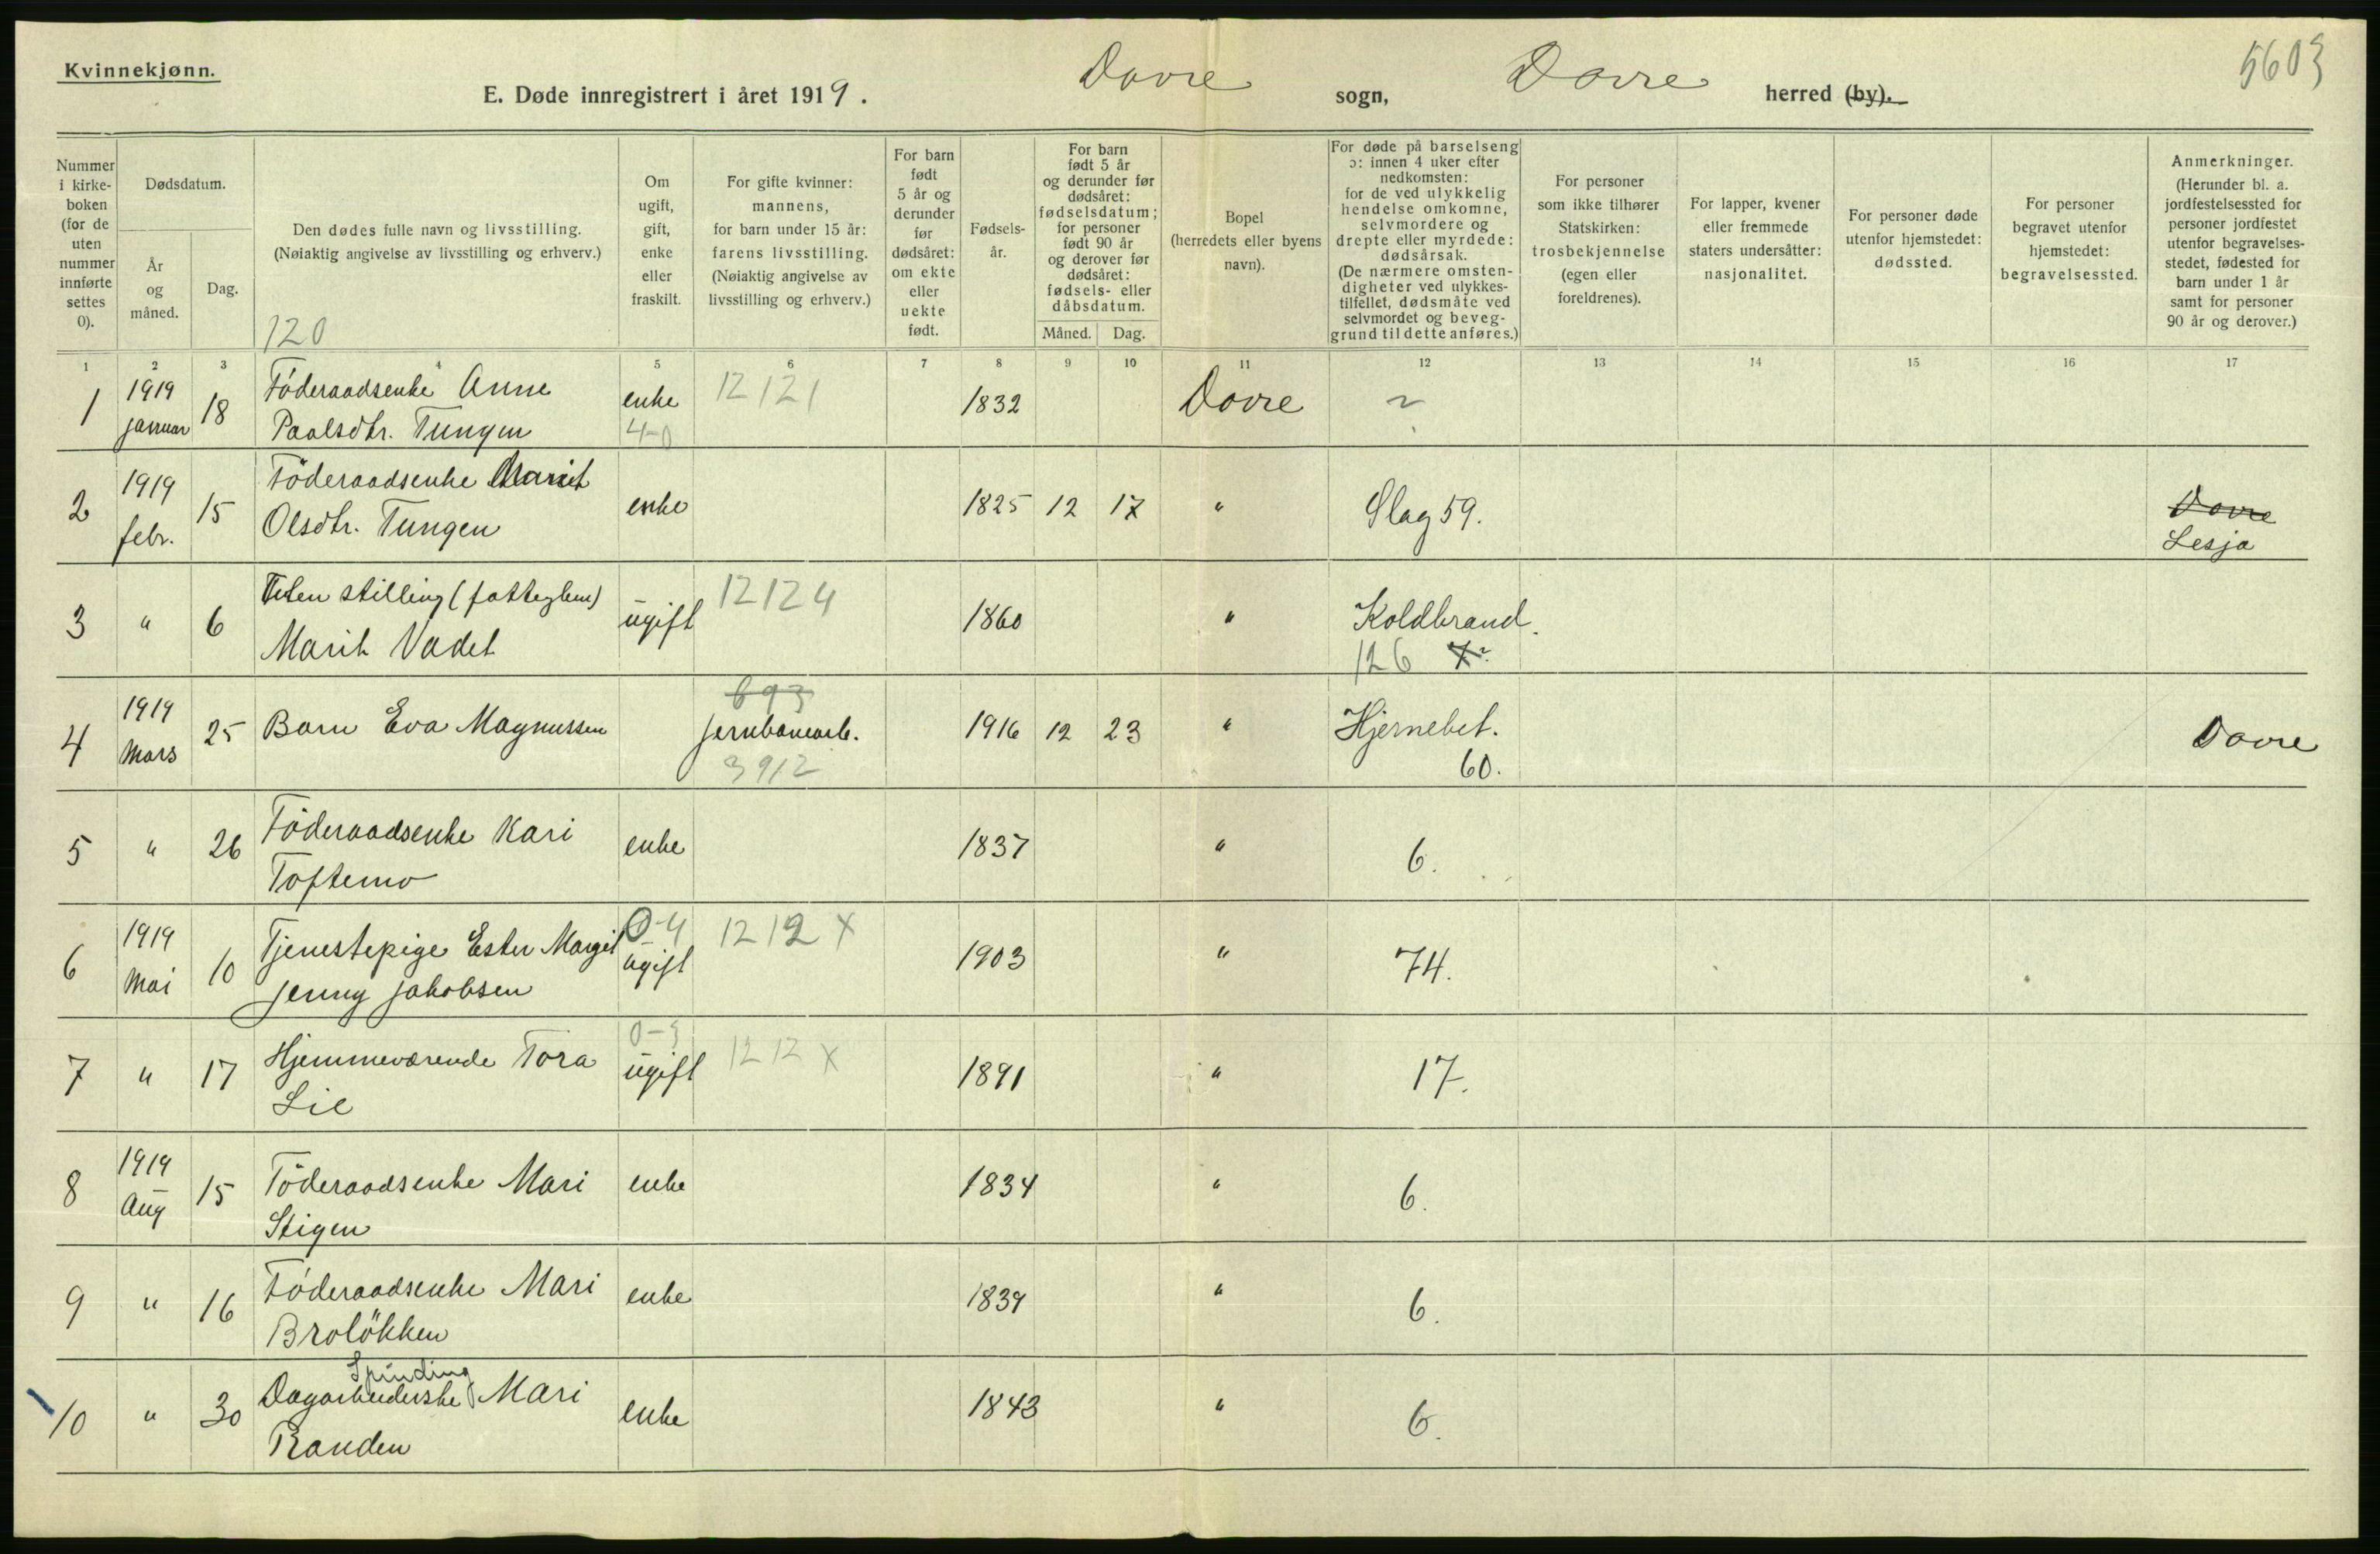 Kvinnekjønn.
E. Døde innregistrert i året 1919. Dovre sogn, Dovre herred (by).
5603
Nummer i kirke-boken (for de uten nummer innførte settes 0).
Dødsdatum.
År og måned.
Dag.
Den dødes fulle navn og livsstilling.
(Nøiaktig angivelse av livsstilling og erhverv.)
120
Om ugift, gift, enke eller fraskilt.
For gifte kvinner: mannens, for barn under 15 år: farens livsstilling. (Nøiaktig angivelse av livsstilling og erhverv.)
For barn født 5 år og derunder før dødsåret: om ekte eller uekte født.
Fødsels-år.
For barn født 5 år og derunder før dødsåret: fødselsdatum; for personer født 90 år og derover før dødsåret: fødsels- eller dåbsdatum.
Måned. Dag.
Bopel (herredets eller byens navn).
For døde på barselseng ɔ: innen 4 uker efter nedkomsten: for de ved ulykkelig hendelse omkomne, selvmordere og drepte eller myrdede: dødsårsak. (De nærmere omsten-digheter ved ulykkes-tilfellet, dødsmåte ved selvmordet og beveg-grund til dette anføres.)
For personer som ikke tilhører Statskirken: trosbekjennelse (egen eller foreldrenes).
For lapper, kvener eller fremmede staters undersåtter: nasjonalitet.
For personer døde utenfor hjemstedet: dødssted.
For personer begravet utenfor hjemstedet: begravelsessted.
Anmerkninger. (Herunder bl. a. jordfestelsessted for personer jordfestet utenfor begravelses-stedet, fødested for barn under 1 år samt for personer 90 år og derover.)
1 2 3 4 5 6 7 8 9 10 11 12 13 14 15 16 17
1 1919 januar 18 Föderaadsenke Anne enke 12121 1832 Dovre ?
Paalsdtr. Tungen 4-0
2 1919 febr. 15 Föderaadsenke Marit enke 1825 12 17 " Slag 59. Dovre
Olsdtr. Tungen Lesja
3 " 6 Uten stilling (fatteglem) ugift 12124 1860 " Koldbrand.
Marit Vadet 126 X?
4 1919 Mars 25 Barn Eva Magnussen 693 jernbanearb. 3912 1916 12 23 " Hjernebet. 60. Dovre
5 " 26 Föderaadsenke Kari enke 1837 " 6.
Toftemo
6 1919 Mai 10 Tjenestepige Ester Margit 0-4 ugift 1212 X 1903 " 74.
Jenny Jakobsen
7 " 17 Hjemmeværende Tora 0-3 ugift 1212 X 1891 " 17.
Lie
8 1919 Aug 15 Föderaadsenke Mari enke 1834 " 6.
Stigen
9 " 16 Föderaadsenke Mari enke 1839 " 6.
Brolökken
Spinding
10 " 30 Dagarbeiderske Mari enke 1843 " 6.
Randen